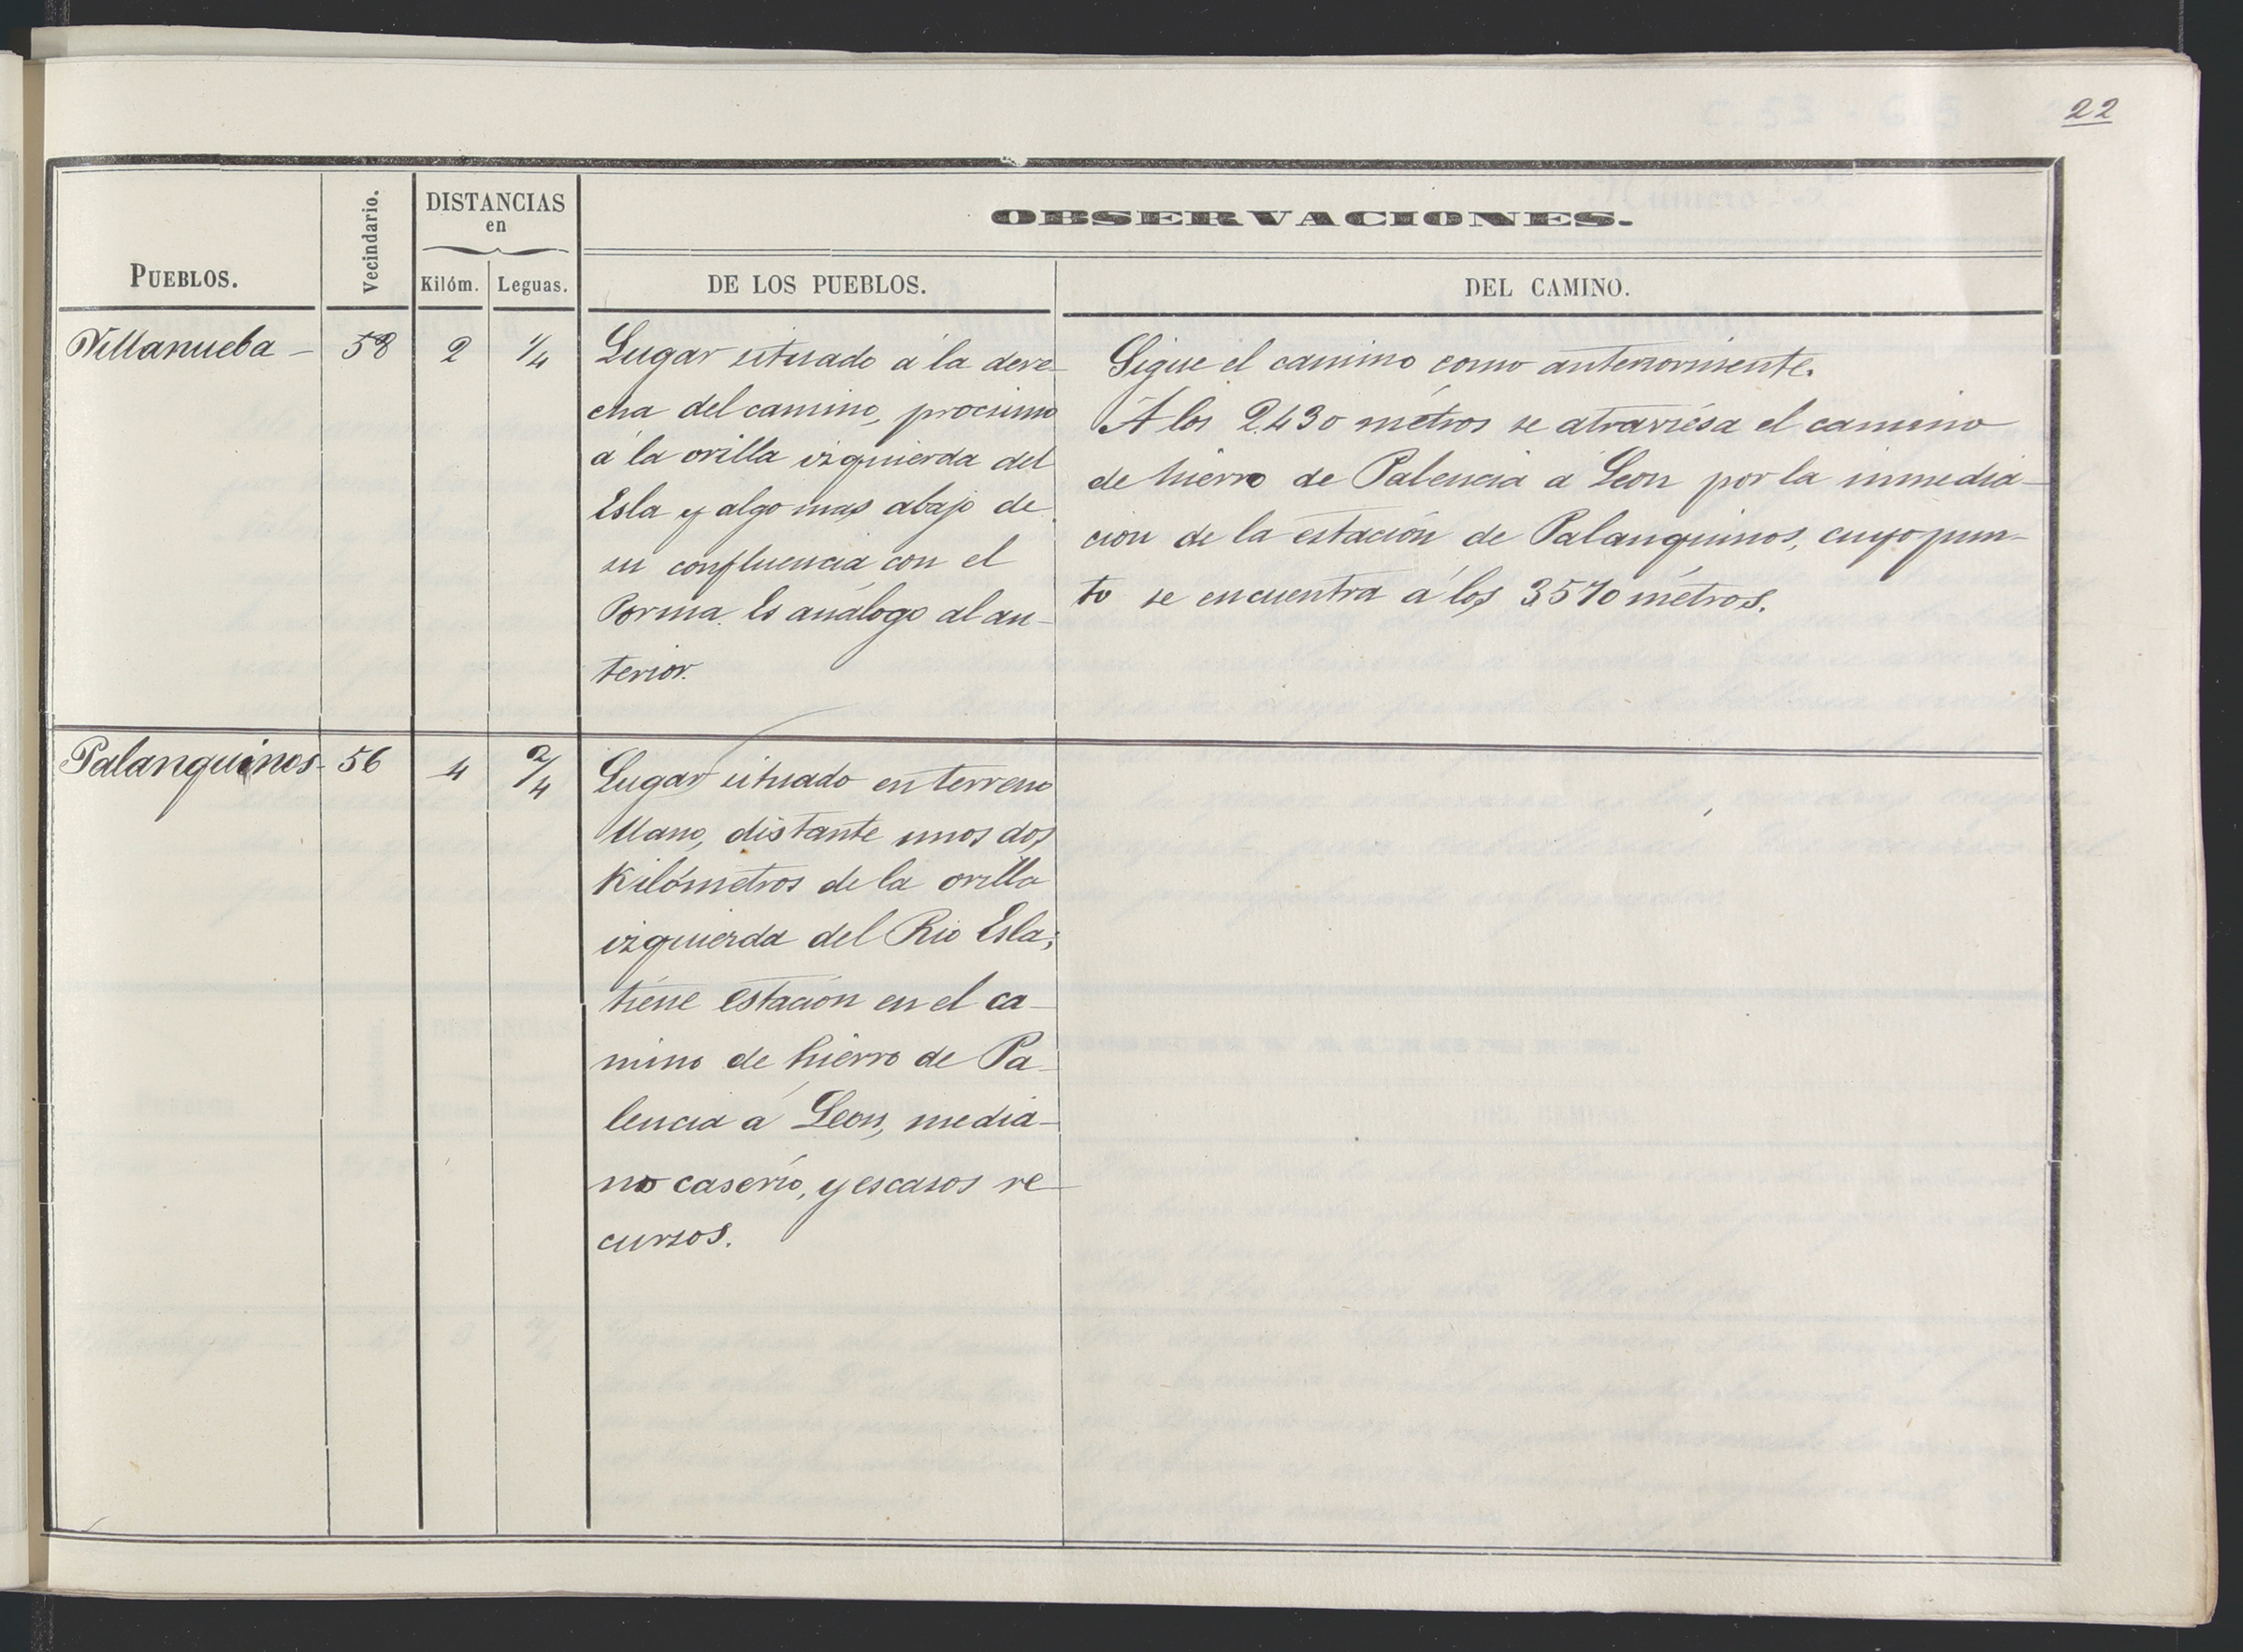 22
OBSERVACIONES.
PUEBLOS.
Vecindario.
DISTANCIAS
en
Kilóm.
Leguas.
DE LOS PUEBLOS.
DEL CAMINO.
Villanueba –
58
2
1/4
Lugar situado á la dere-
cha del camino, procsimo
á la orilla izquierda del
Esla y algo mas abajo de
su confluencia con el
Porma. Es análogo al an-
terior.
Sigue el camino como anteriormente.
A los 2.430 métros se atraviésa el camino
de hierro de Palencia á Leon por la inmedia-
ción de la estación de Palanquinos, cuyo pun-
to se encuentra á los 3570 métros.
Palanquinos-
56
4
2/4
Lugar situado en terreno
llano, distante unos dos
Kilómetros de la orilla
izquierda del Rio Esla;
tiene estación en el ca-
mino de hierro de Pa-
lencia á Leon, media-
no caserío, y escasos re-
cursos.